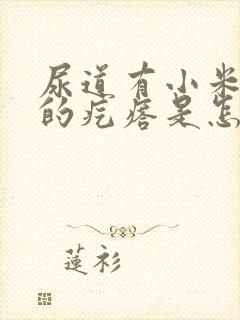 尿道有小米
的疙瘩是怎
蓮衫